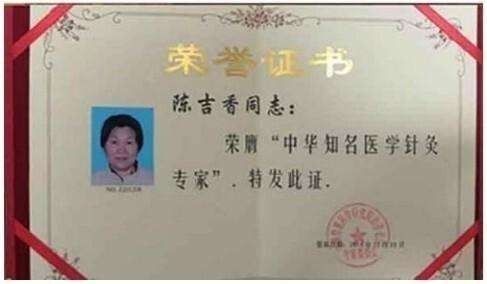 荣誉证书
陈吉香同志：
荣膺“中华知名医学针灸
专家”．特发此证．